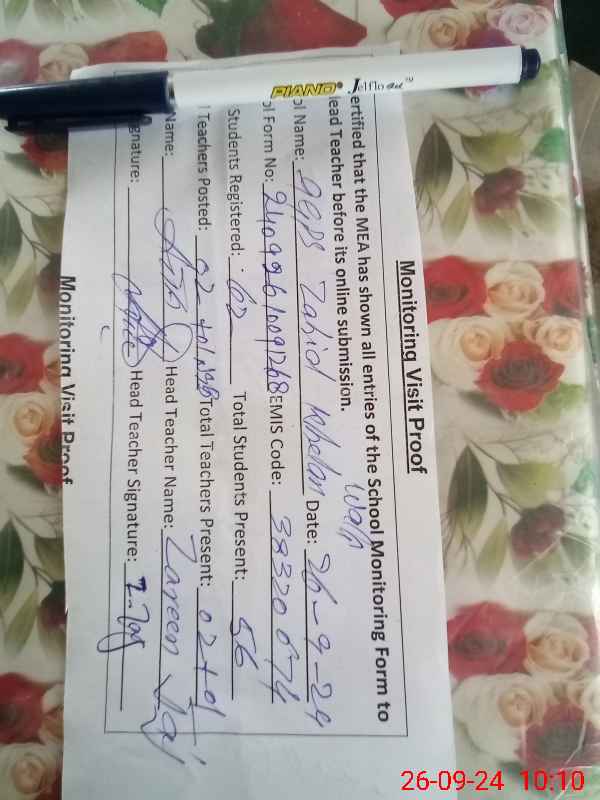 PIANO Jelflo Gel ™
Monitoring Visit Proof
ertified that the MEA has shown all entries of the School Monitoring Form to
lead Teacher before its online submission.
ol Name: GGPS Zahid Khelan Wala Date: 26-9-24
ol Form No: EMIS Code:
Students Registered: 62 Total Students Present: 56
l Teachers Posted: 02+01 Total Teachers Present: 02+01
Name: Head Teacher Name: Zareen
gnature: Head Teacher Signature:
Monitoring Visit Proof
26-09-24 10:10